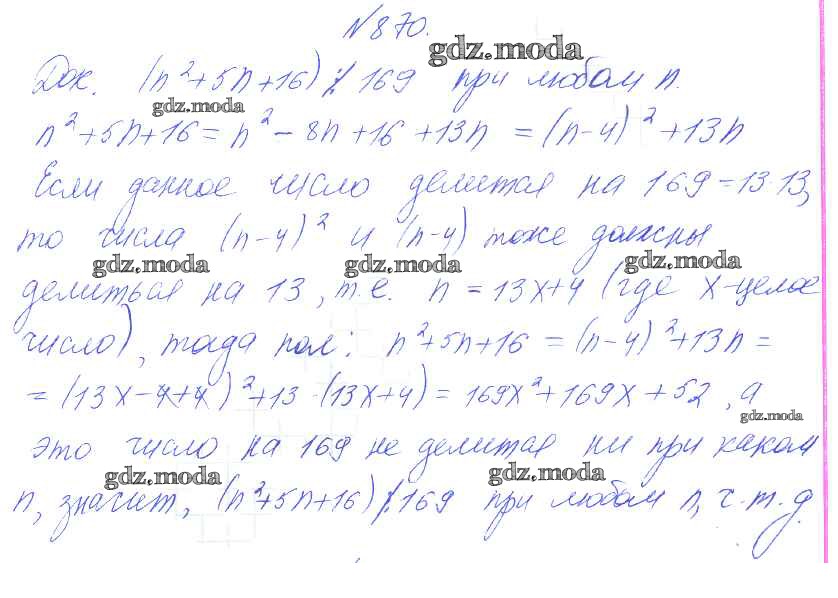 № 870.
gdz.moda
Док. (n²+5n+16) ⁒ 169 при любом n.
gdz.moda
n²+5n+16 = n² - 8n + 16 + 13n = (n-4)² + 13n
Если данное число делится на 169 = 13·13,
то числа (n-4)² и (n-4) тоже должны
gdz.moda gdz.moda gdz.moda
делиться на 13, т.е. n = 13x+4 (где x-целое
число), тогда пол: n²+5n+16 = (n-4)²+13n =
= (13x-4+4)²+13·(13x+4) = 169x²+169x+52, а
gdz.moda
это число на 169 не делится ни при каком
gdz.moda gdz.moda
n, значит, (n²+5n+16) ⁒ 169 при любом n, ч.т.д.